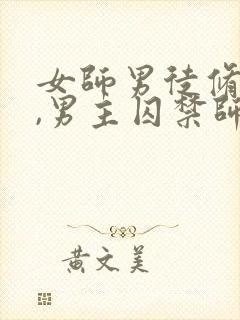 女師男徒脩
,男主囚禁師
黃文美